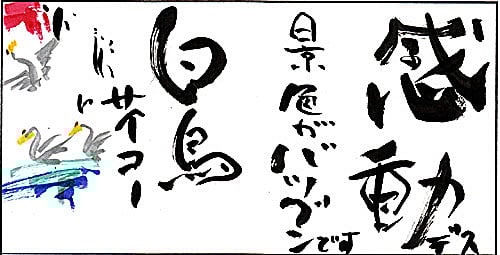 感動デス
景色がバツグンです
白鳥
サイコー